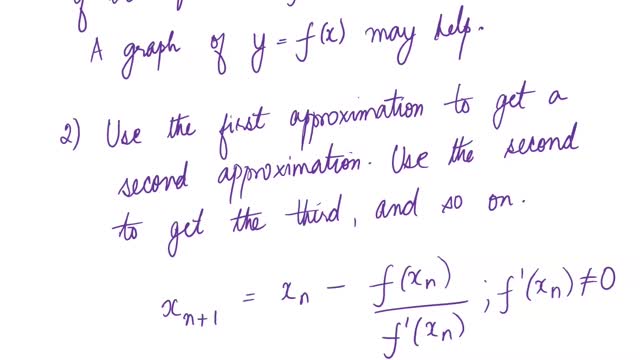 A graph of y = f(x) may help.
2) Use the first approximation to get a
second approximation. Use the second
to get the third, and so on.
xₙ₊₁ = xₙ − f(xₙ)/f'(xₙ) ; f'(xₙ) ≠ 0